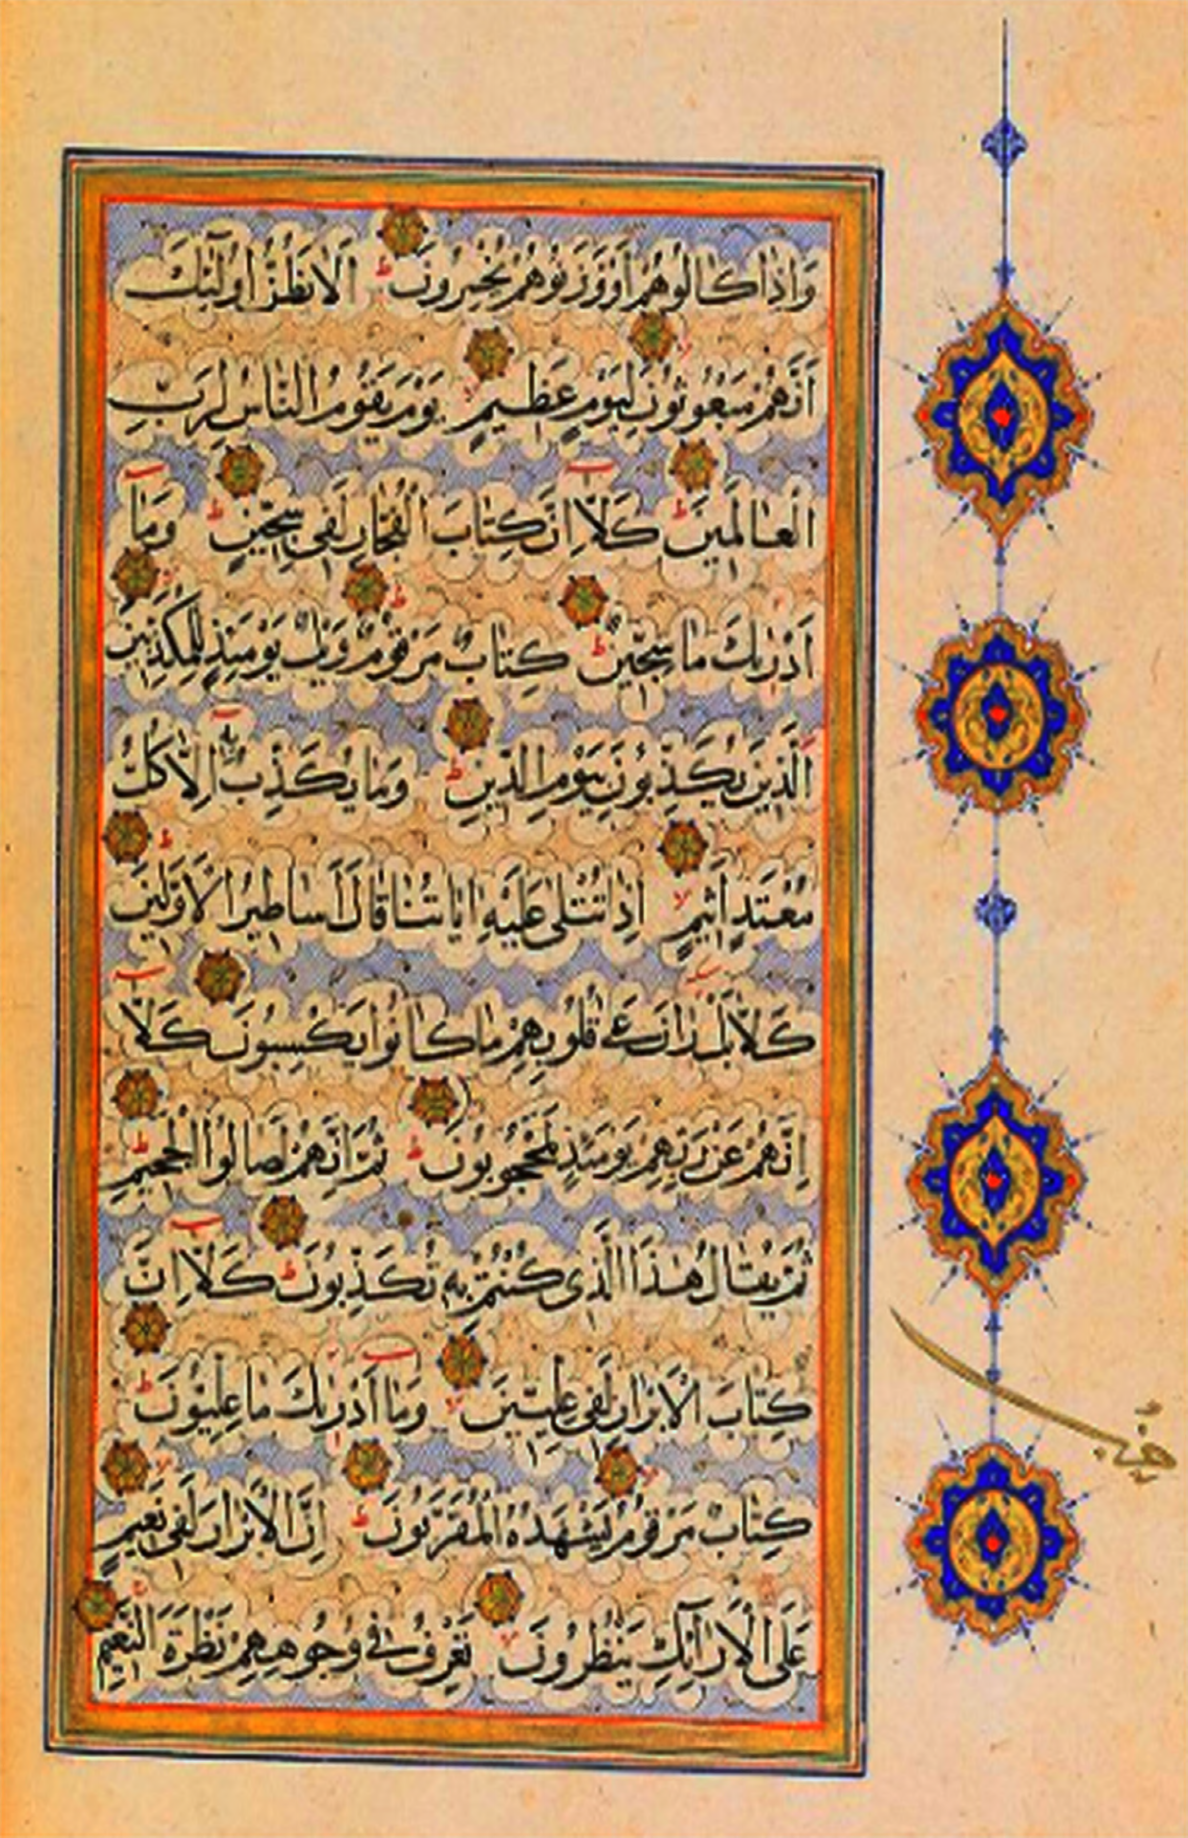 وَاِذَا كَالُوهُمْ اَوْ وَزَنُوهُمْ يُخْسِرُونَ ط اَلَا يَظُنُّ اُولٰٓئِكَ
اَنَّهُمْ مَبْعُوثُونَ لا لِيَوْمٍ عَظِيمٍ لا يَوْمَ يَقُومُ النَّاسُ لِرَبِّ
الْعَالَمِينَ ط كَلَّا اِنَّ كِتَابَ الْفُجَّارِ لَفِى سِجِّينٍ ط وَمَا
اَدْرٰيكَ مَا سِجِّينٌ ط كِتَابٌ مَرْقُومٌ ط وَيْلٌ يَوْمَئِذٍ لِلْمُكَذِّبِينَ لا
اَلَّذِينَ يُكَذِّبُونَ بِيَوْمِ الدِّينِ ط وَمَا يُكَذِّبُ بِهِ اِلَّا كُلُّ
مُعْتَدٍ اَثِيمٍ لا اِذَا تُتْلٰى عَلَيْهِ اٰيَاتُنَا قَالَ اَسَاطِيرُ الْاَوَّلِينَ ط
كَلَّا بَلْ رَانَ عَلٰى قُلُوبِهِمْ مَا كَانُوا يَكْسِبُونَ كَلَّا
اِنَّهُمْ عَنْ رَبِّهِمْ يَوْمَئِذٍ لَمَحْجُوبُونَ ط ثُمَّ اِنَّهُمْ لَصَالُوا الْجَحِيمِ ط
ثُمَّ يُقَالُ هٰذَا الَّذِى كُنْتُمْ بِهِ تُكَذِّبُونَ ط كَلَّا اِنَّ
كِتَابَ الْاَبْرَارِ لَفِى عِلِّيِّينَ لا وَمَا اَدْرٰيكَ مَا عِلِّيُّونَ ط
كِتَابٌ مَرْقُومٌ لا يَشْهَدُهُ الْمُقَرَّبُونَ ط اِنَّ الْاَبْرَارَ لَفِى نَعِيمٍ لا
عَلَى الْاَرَآئِكِ يَنْظُرُونَ لا تَعْرِفُ فِى وُجُوهِهِمْ نَضْرَةَ النَّعِيمِ
حزب